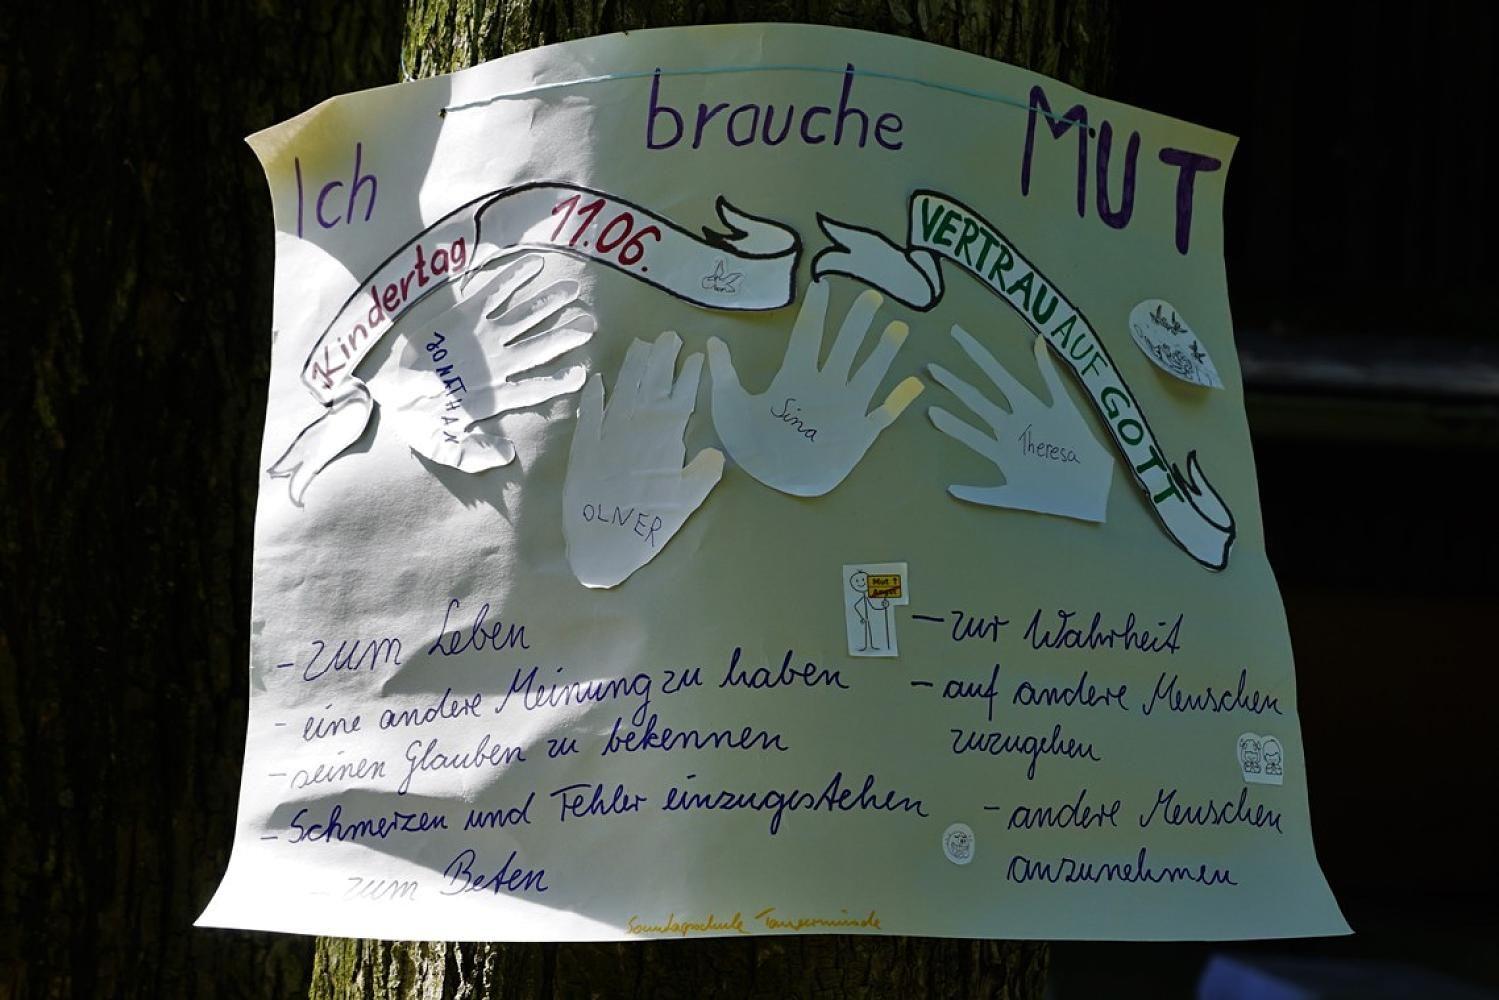 Ich brauche MUT
Kindertag 11.06.
VERTRAU AUF GOTT
JONATHAN
OLIVER
Sina
Theresa
Mut ?
Angst
- zum Leben
- eine andere Meinung zu haben
- seinen Glauben zu bekennen
- Schmerzen und Fehler einzugestehen
- zum Beten
- zur Wahrheit
- auf andere Menschen
zuzugehen
- andere Menschen
anzunehmen
Sonntagsschule Tangermünde